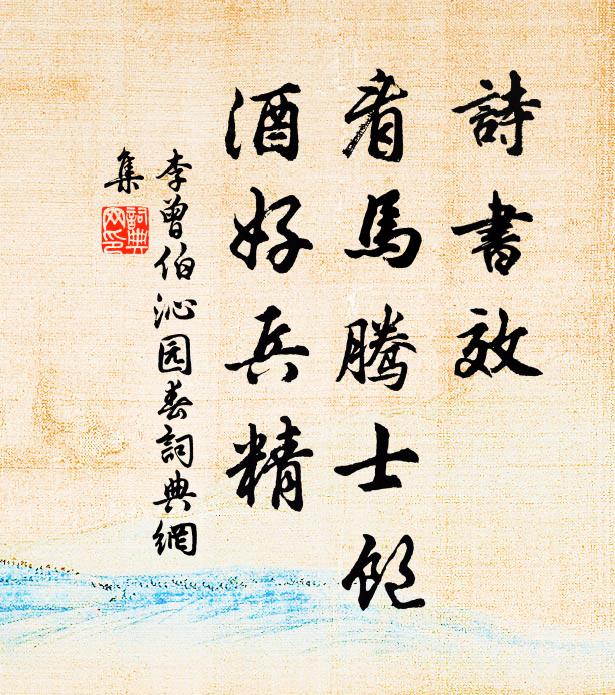 詩書效
看馬騰士飽
酒好兵精
李曾伯沁园春詞典網
集
詞典网印